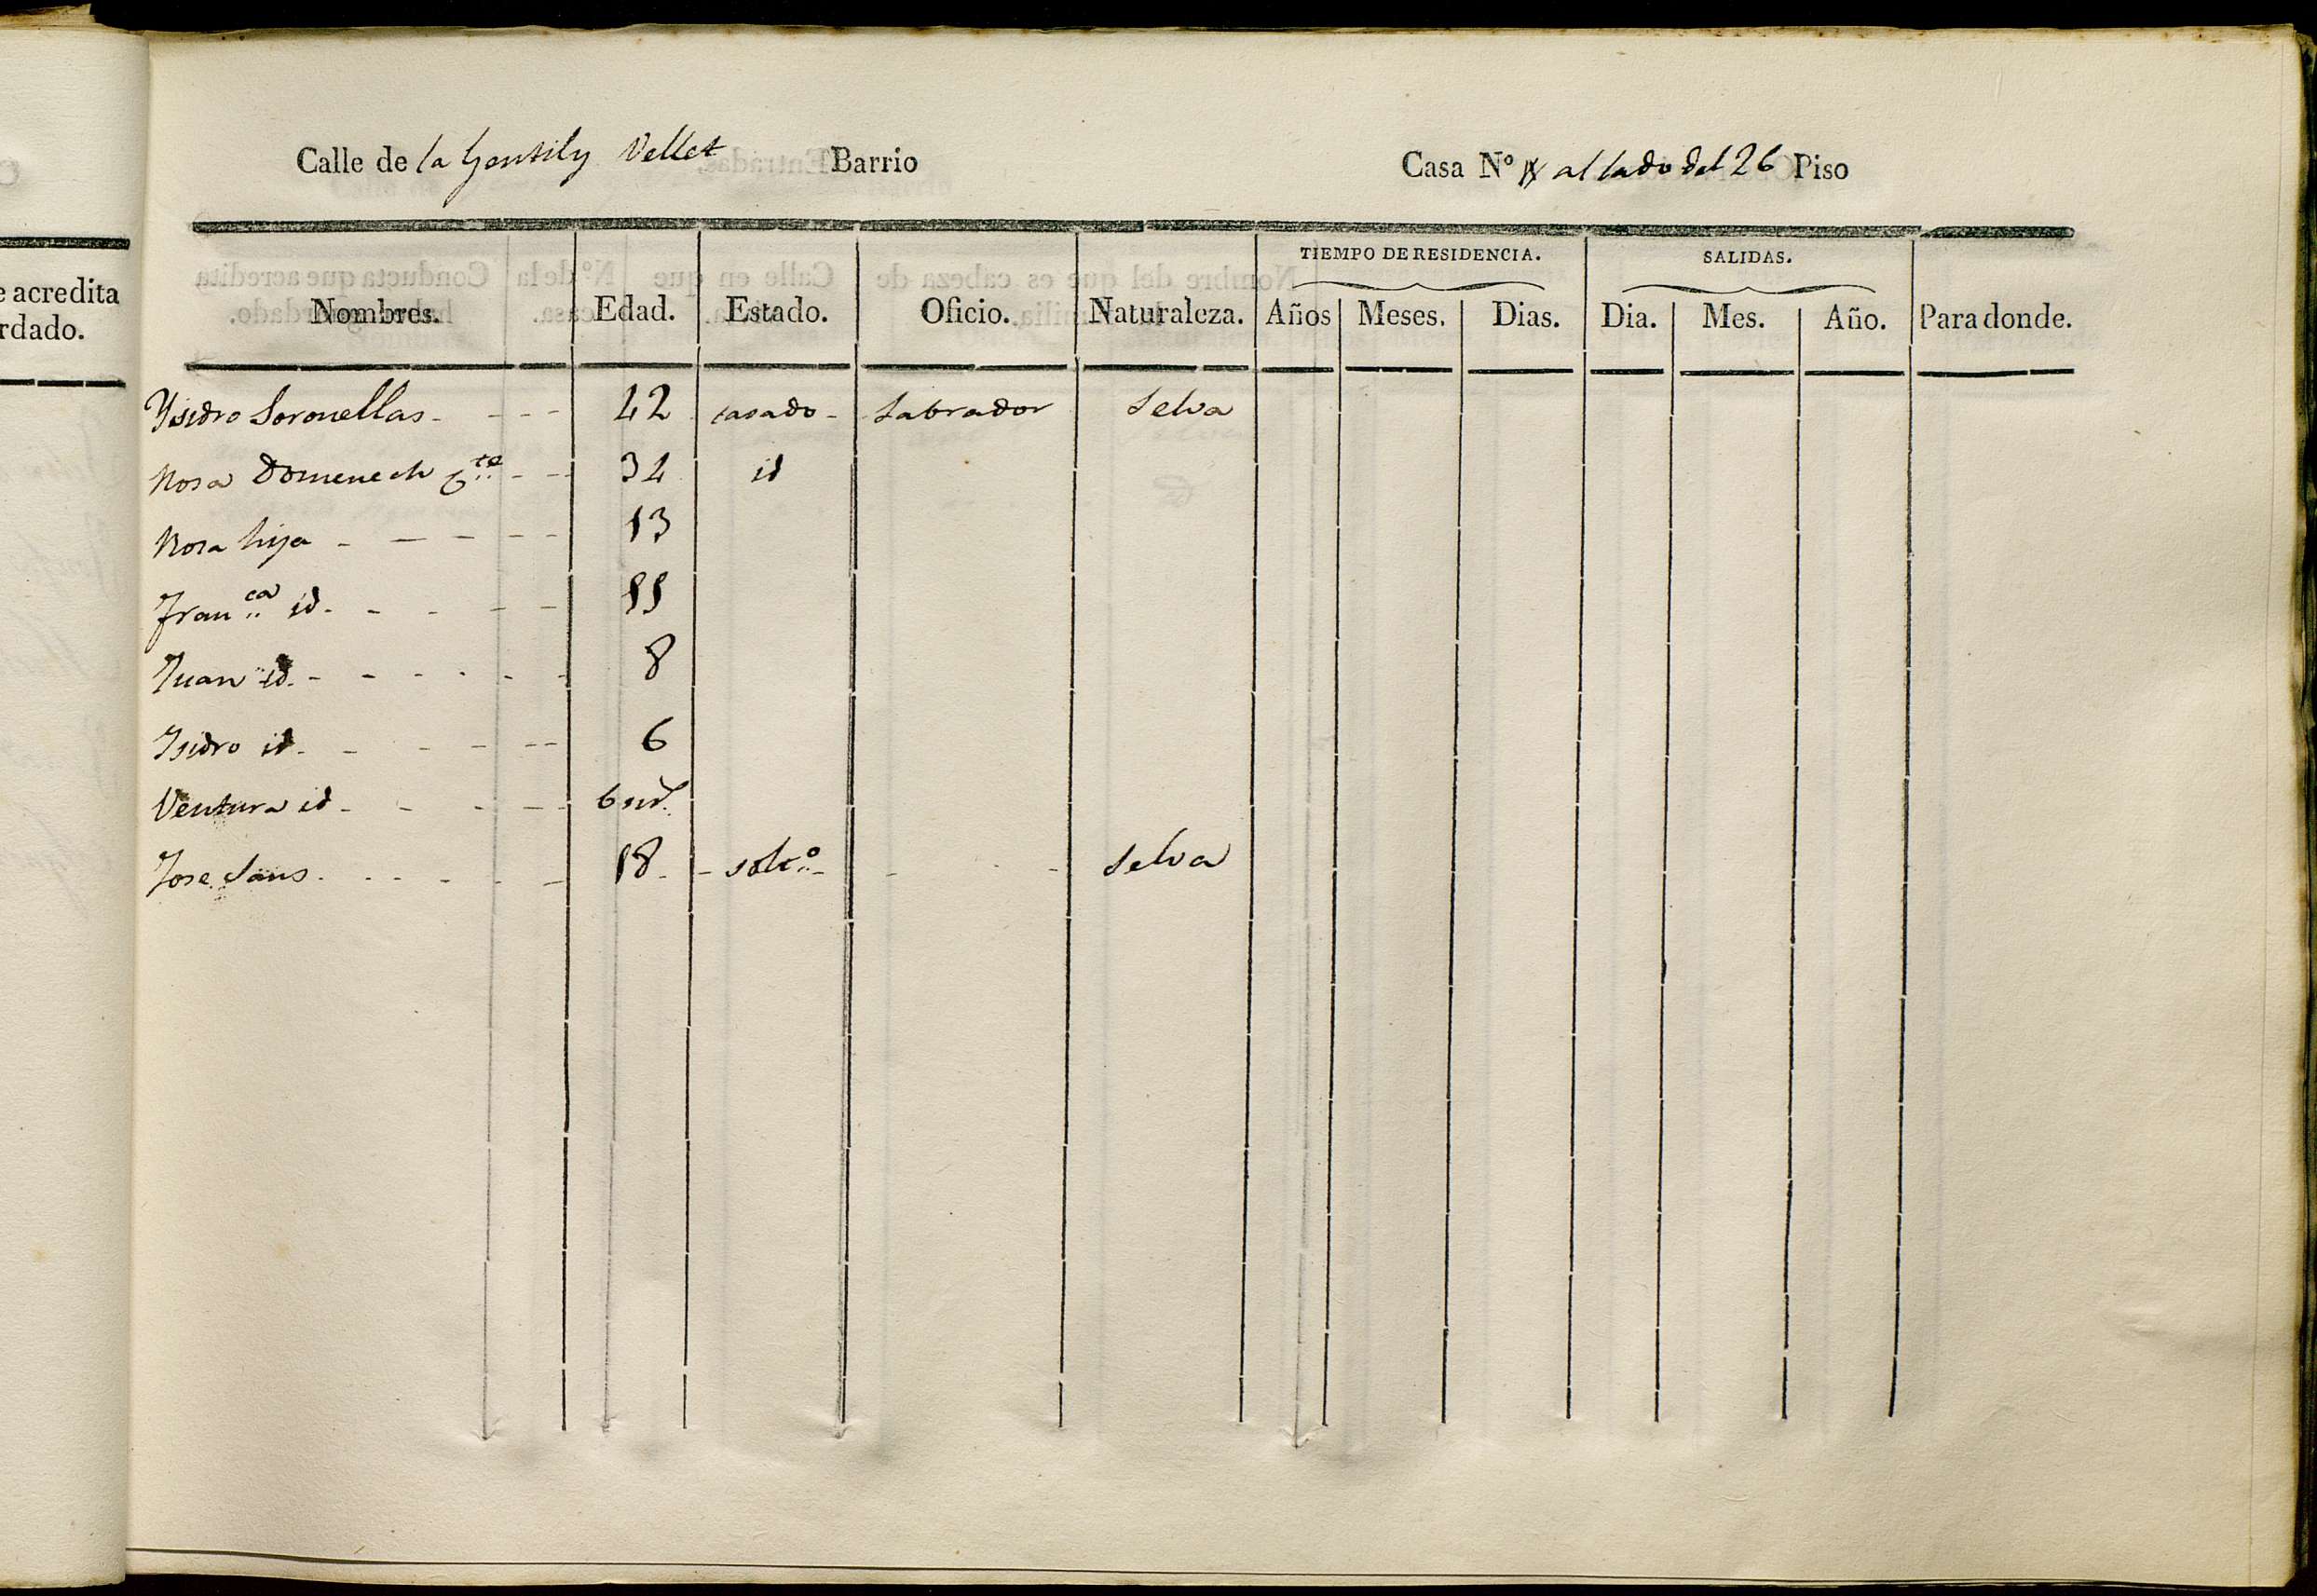 e acredita
rdado.
Calle de la Gentily Vellet Barrio Casa Nº al lado del 26 Piso
TIEMPO DE RESIDENCIA. SALIDAS.
Nombres. Edad. Estado. Oficio. Naturaleza. Años Meses. Dias. Dia. Mes. Año. Para donde.
Ysidro Soronellas - - - - 42 casado - Labrador Selva
Rosa Domenech c.te - - 32 id
Rosa hija - - - - - 13
Fran.ca id. - - - - 11
Juan id. - - - - - - 8
Isidro id. - - - - - 6
Ventura id - - - - - 6 ms.
Jose Sans. - - - - - 18 - - solt.o - - - Selva